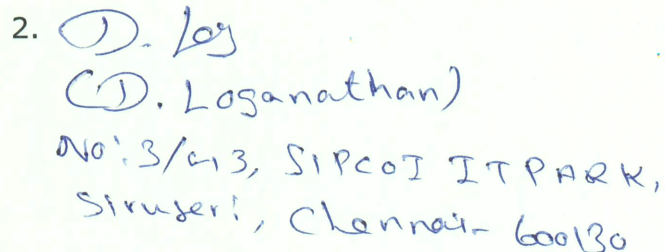 2. D. Log
(D. Loganathan)
No: 3/G13, SIPCOT IT PARK,
Siruseri, Chennai - 600130